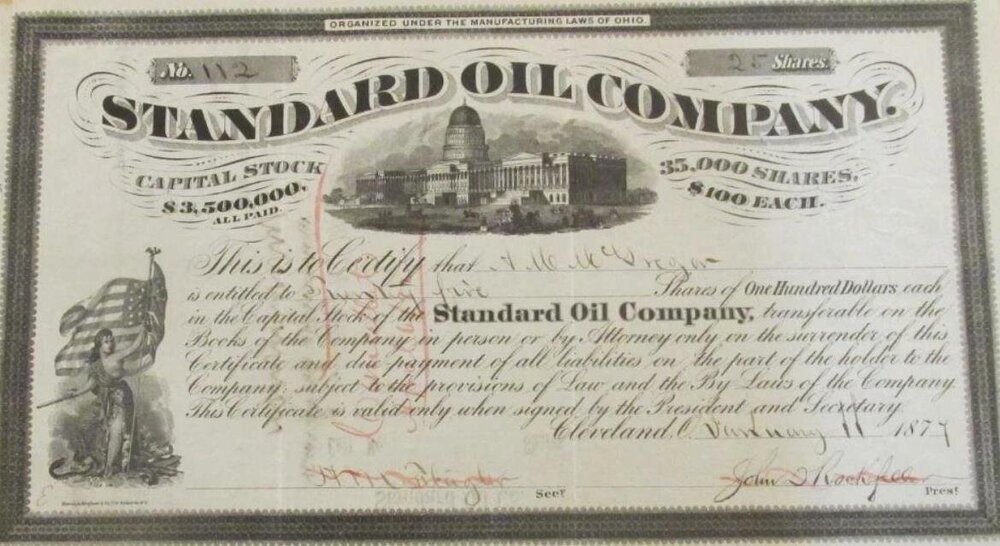 ORGANIZED UNDER THE MANUFACTURING LAWS OF OHIO.
No. 112
25 Shares.
STANDARD OIL COMPANY.
CAPITAL STOCK
$3,500,000,
ALL PAID.
35,000 SHARES,
$100 EACH.
This is to Certify that A. M. McGregor
is entitled to Twenty five Shares of One Hundred Dollars each
in the Capital Stock of the Standard Oil Company, transferable on the
Books of the Company in person or by Attorney only on the surrender of this
Certificate and due payment of all liabilities on the part of the holder to the
Company, subject to the provisions of Law and the By Laws of the Company.
This Certificate is valid only when signed by the President and Secretary
Cleveland, O. January 11 1877
H M Flagler Secy
John D Rockefeller Prest